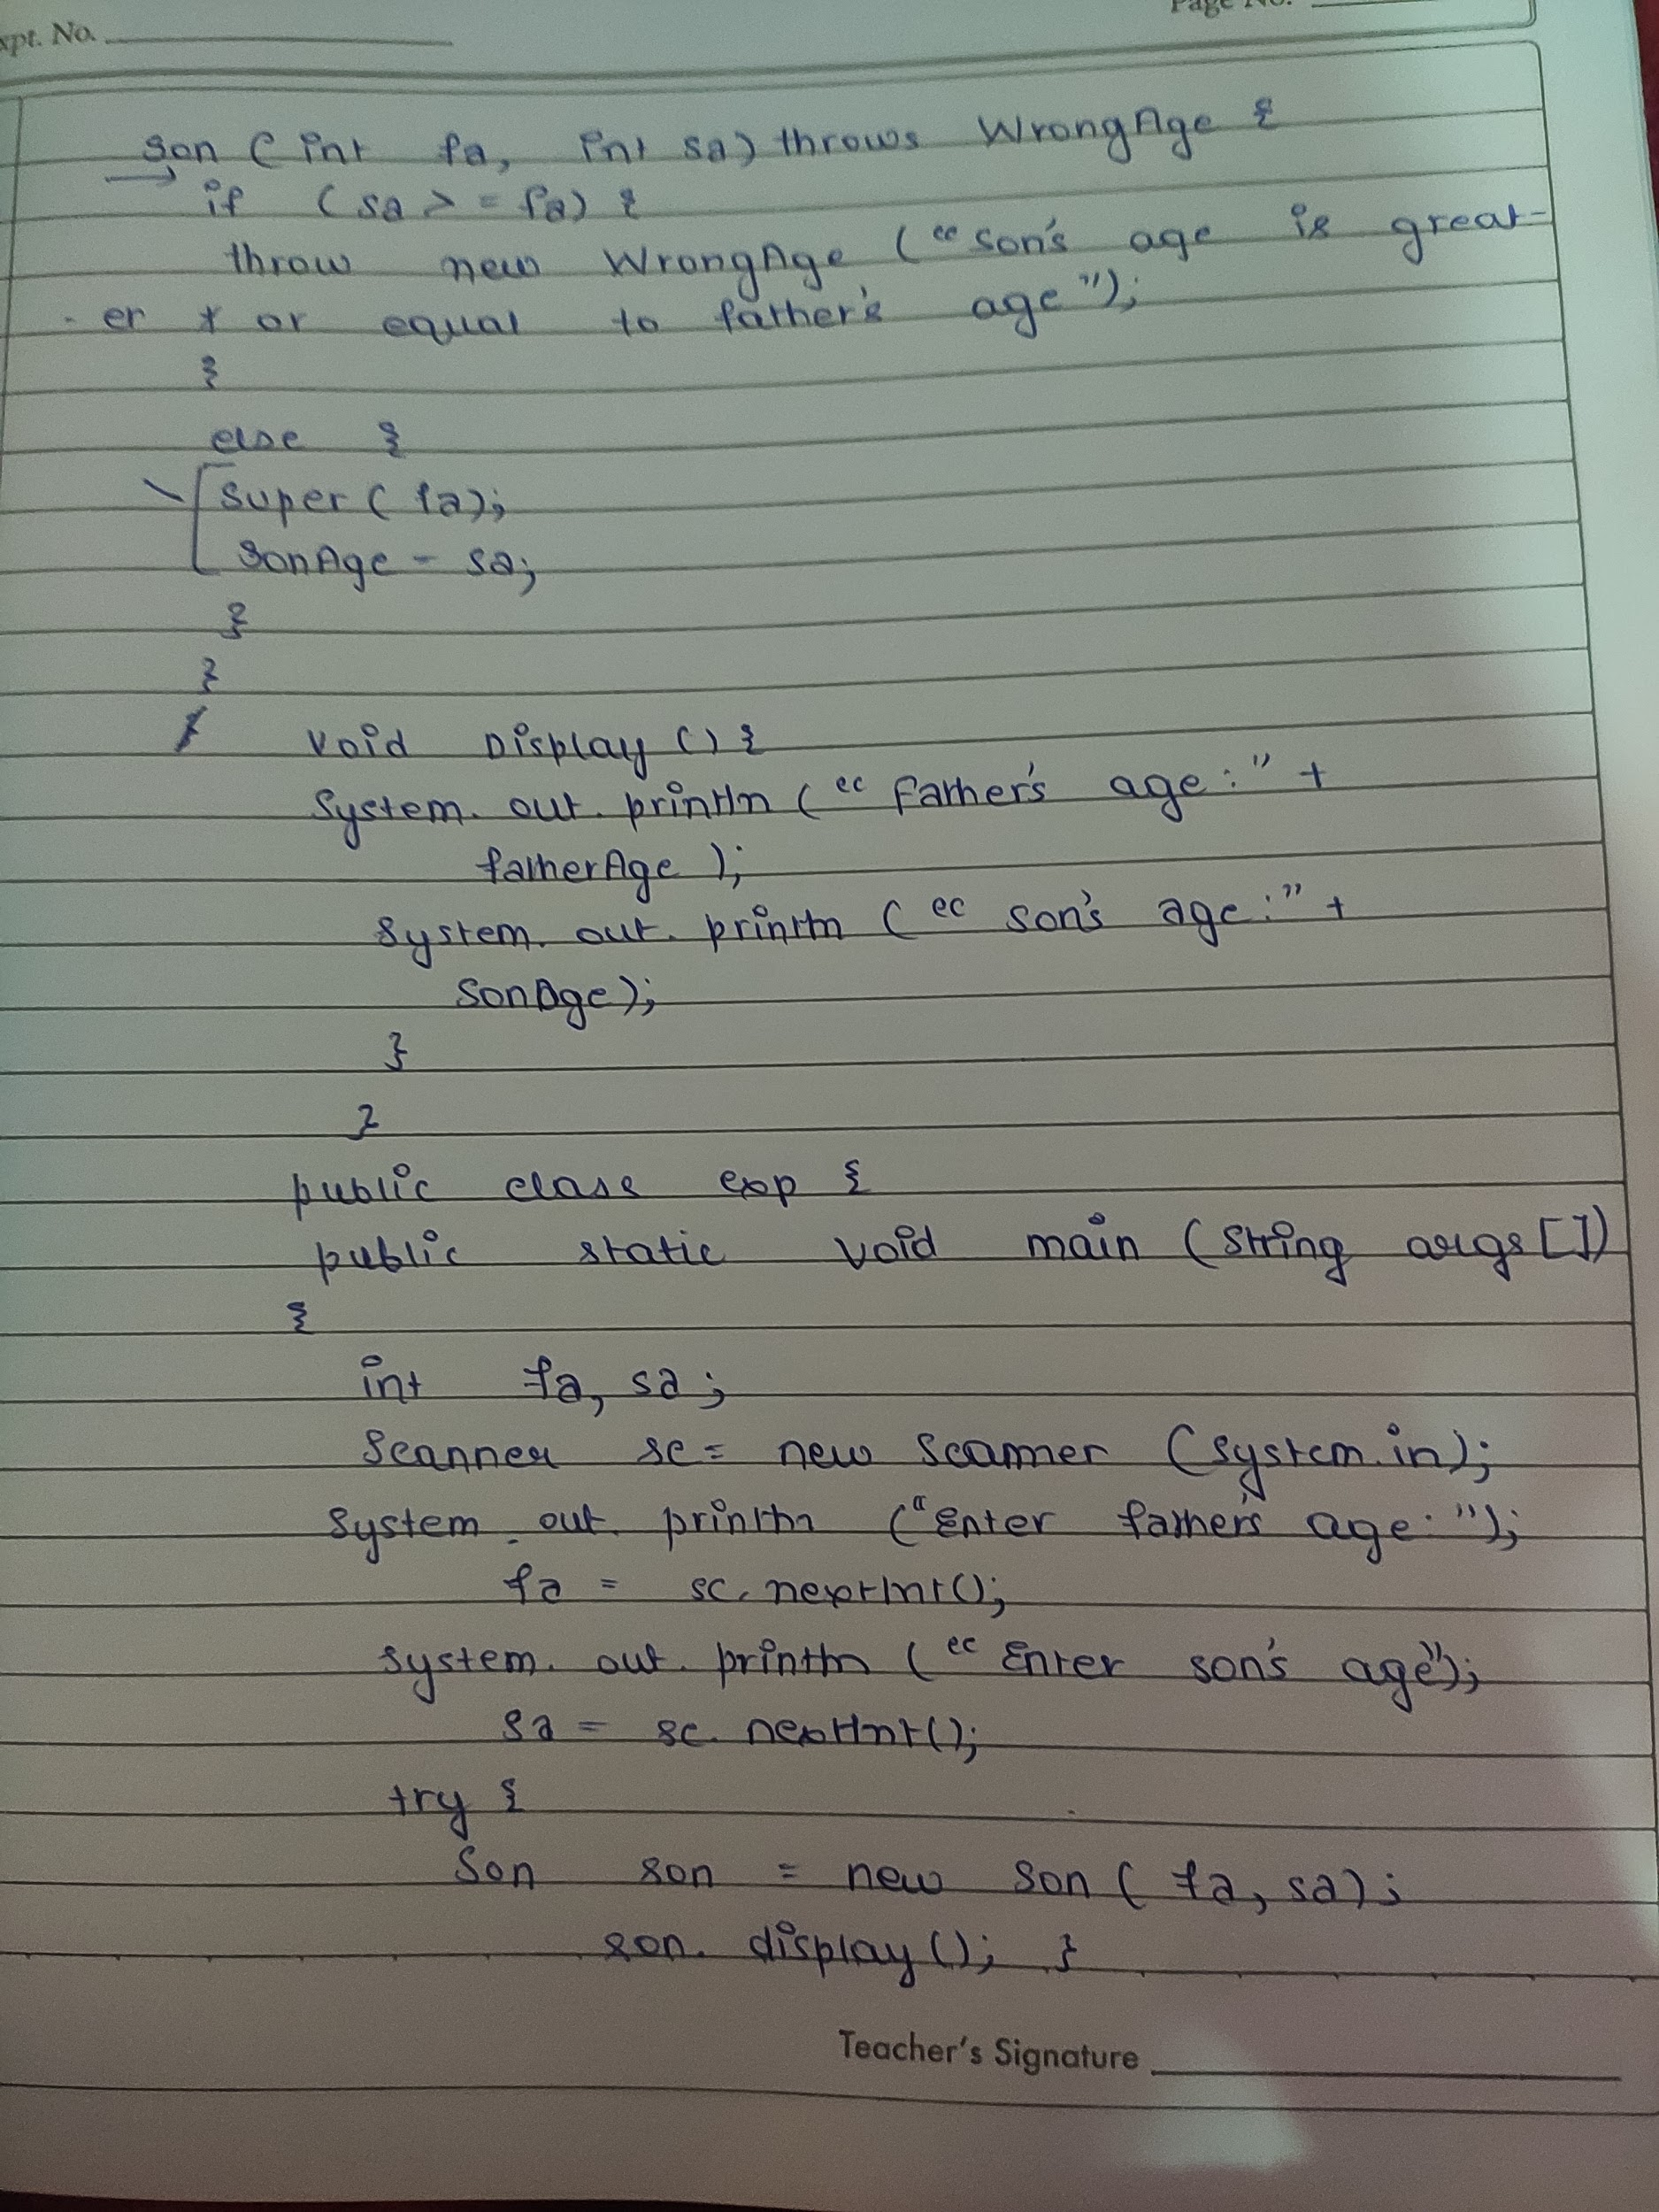 xpt. No.
Page No.
Son (int fa, int sa) throws WrongAge {
if (sa >= fa) {
throw new WrongAge ("son's age is great-
- er or equal to father's age");
}
else {
super(fa);
sonAge = sa;
}
}
void Display () {
System.out.println ("Father's age:" +
fatherAge );
System.out.println (" son's age:" +
SonAge);
}
}
public class exp {
public static void main (String args[])
{
int fa, sa;
Scanner sc = new Scanner (System.in);
System.out.println ("Enter father's age:");
fa = sc.nextInt();
System.out.println ("Enter son's age");
sa = sc.nextInt();
try {
Son son = new Son( fa, sa);
son. display(); }
Teacher's Signature